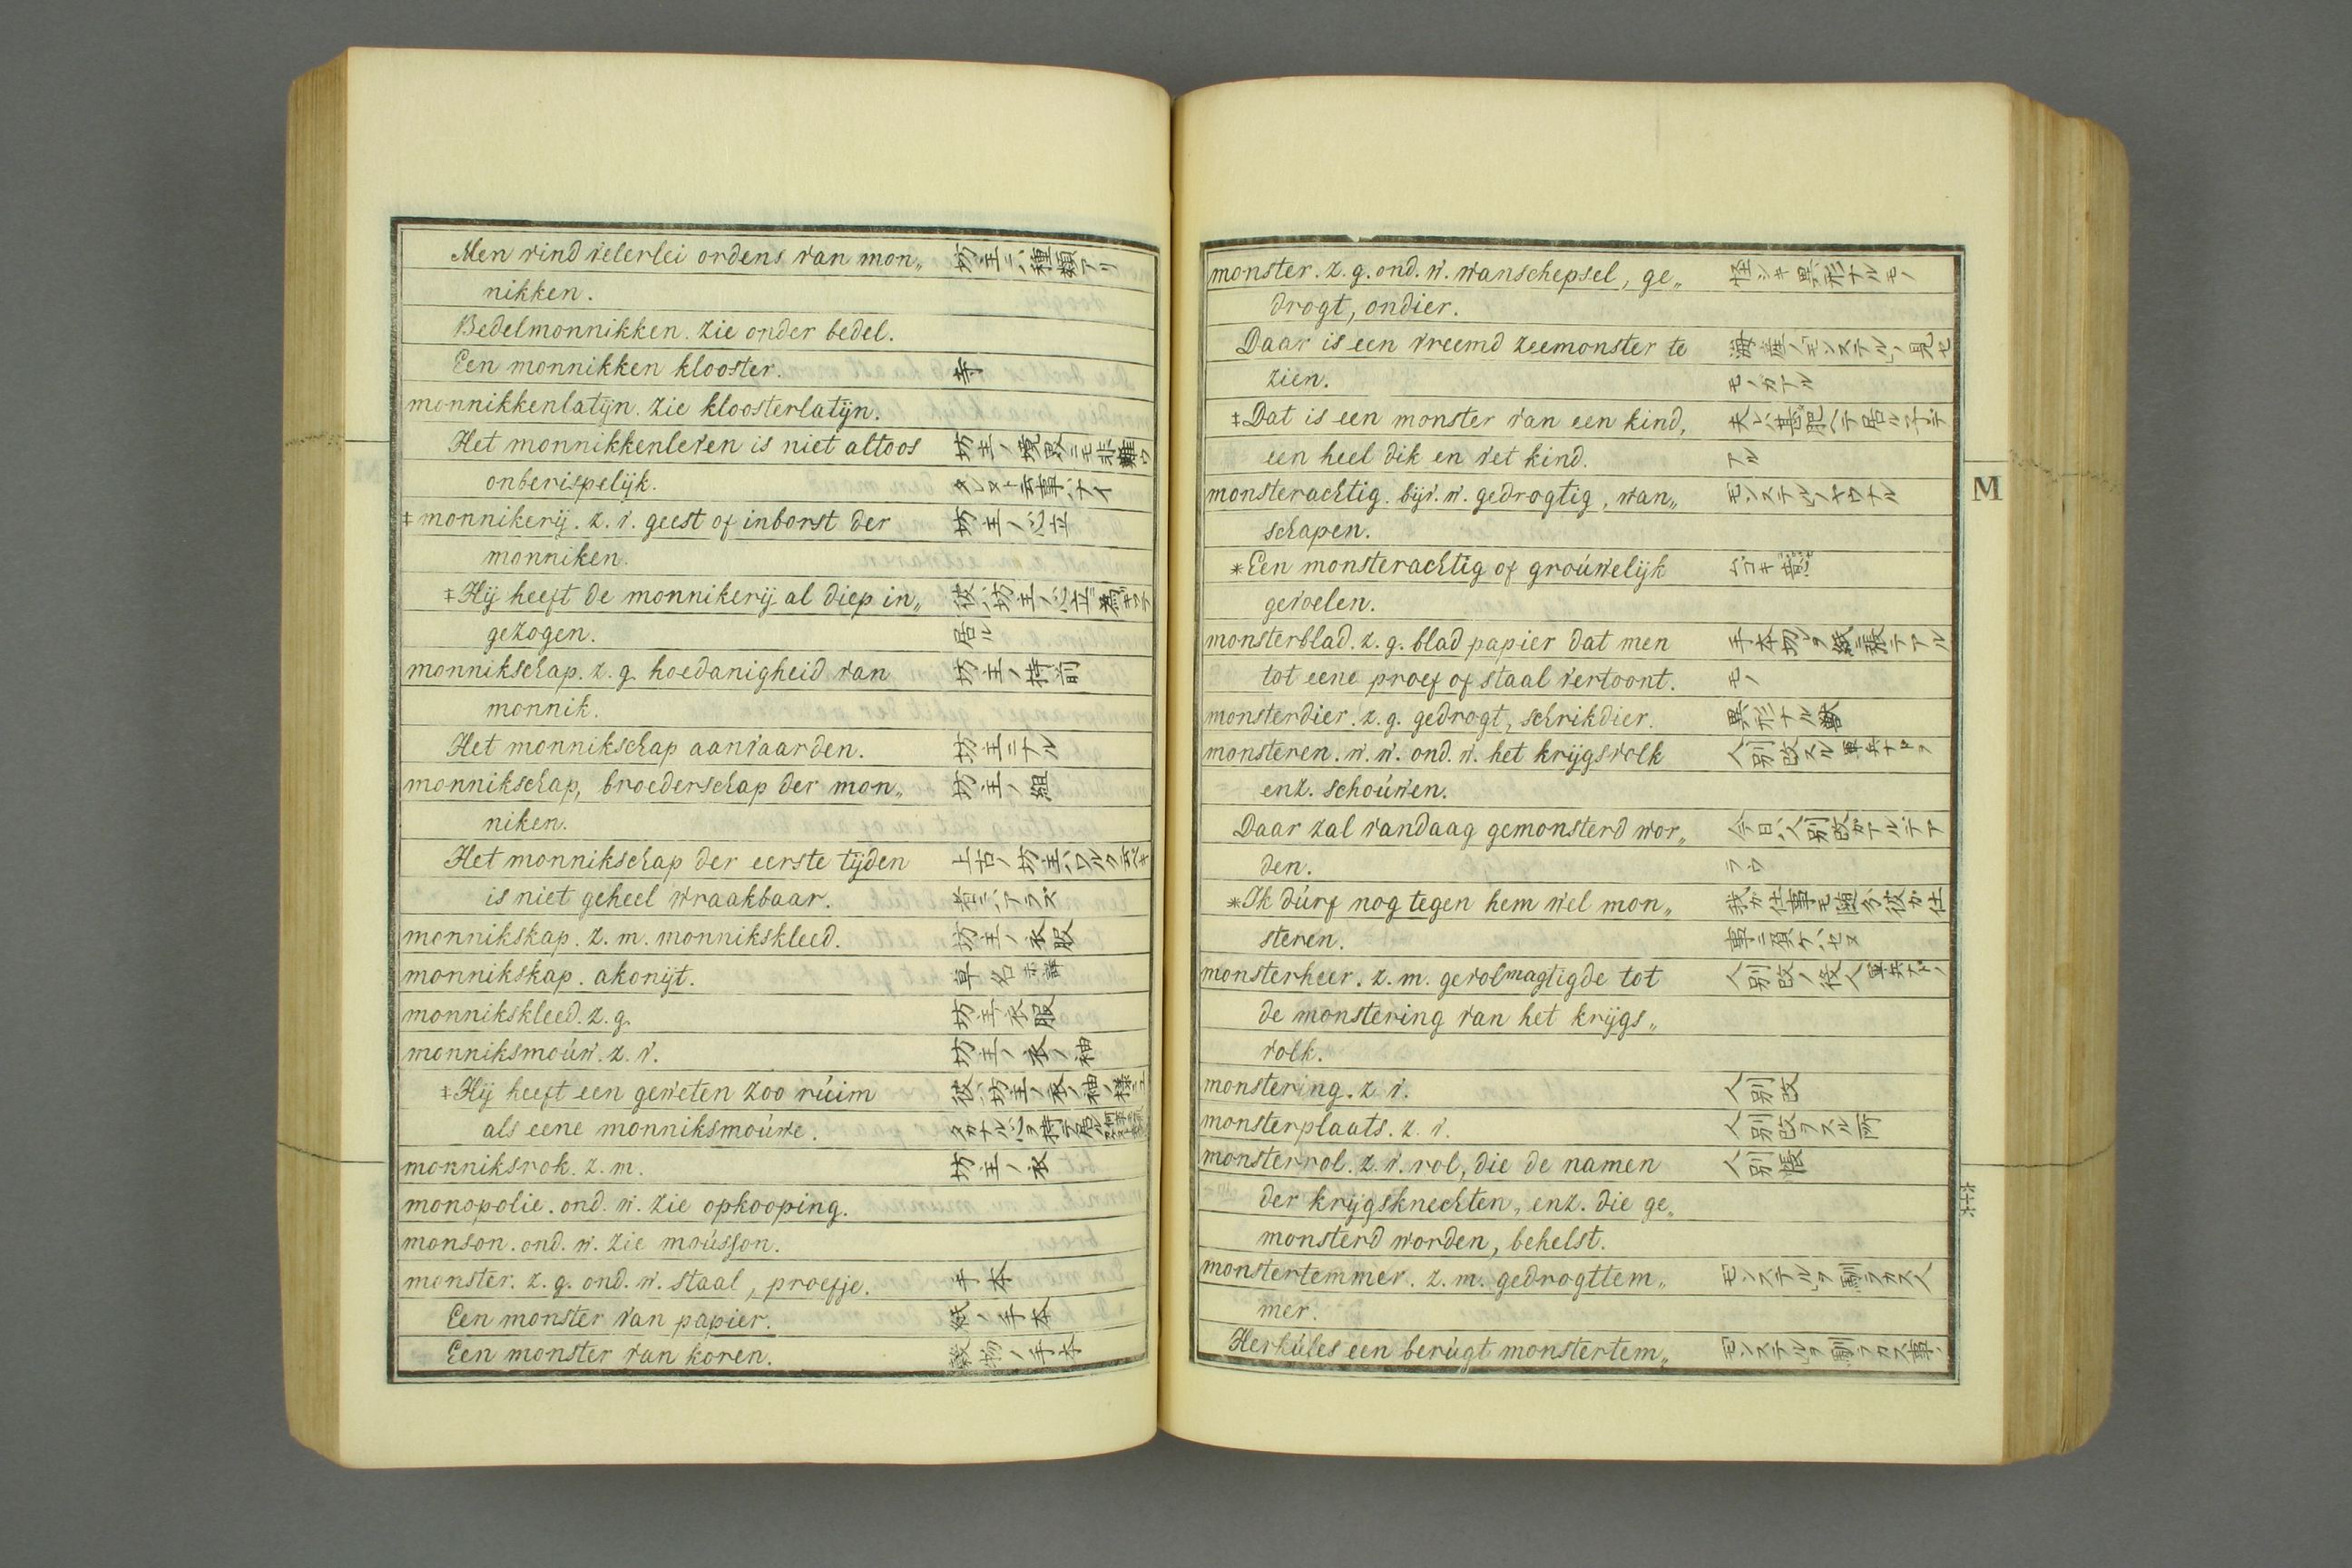 Men vind velerlei ordens van mon„ 坊主ニハ種類アリ
nikken.
Bedelmonnikken. zie onder bedel.
Een monnikken klooster. 寺
monnikkenlatijn. zie kloosterlatijn.
Het monnikkenleven is niet altoos 坊主ノ境界ニモ非難ヲ
onberispelijk. 云事ハナイ
‡monnikerij. z. v. geest of inborst der 坊主ノ心立
monniken.
‡Hij heeft de monnikerij al diep in„ 彼ハ坊主ノ心立
gezogen. 居ル
monnikschap. z. g. hoedanigheid van 坊主ノ持前
monnik.
Het monnikschap aanvaarden. 坊主ニナル
monnikschap, broederschap der mon„ 坊主ノ組
niken.
Het monnikschap der eerste tijden 上古ノ坊主ハワルク云ベキ
is niet geheel wraakbaar. 者ニハアラズ
monnikskap. z. m. monnikskleed. 坊主ノ衣服
monnikskap. akonijt. 草名 未詳
monnikskleed. z. g. 坊主衣服
monniksmoúw. z. v. 坊主ノ衣ノ袖
‡Hij heeft een geweten zoo rúim 彼ハ坊主ノ衣ノ袖ノ様ニユ
als eene monniksmoúwe. タカナル心ヲ持テ居ル
monniksrok. z. m. 坊主ノ衣
monopolie. ond. w. zie opkooping.
monson. ond. w. zie moússon.
monster. z. g. ond. w. staal, proefje. 手本
Een monster van papier. 紙ノ手本
Een monster van koren. 穀物ノ手本
monster. z. g. ond. w. wanschepsel, ge„ 怪シキ異形ナルモノ
drogt, ondier.
Daar is een vreemd zeemonster te 海産ノモンステルノ見セ
zien. モノガアル
‡Dat is een monster van een kind, 夫レハ甚肥ヘテ居ル子デ
een heel dik en vet kind. アル
monsterachtig. bijv. w. gedrogtig, wan„ モンステルノヤウナル
schapen.
*Een monsterachtig of groúwelijk
gevoelen.
monsterblad. z. g. blad papier dat men 手本切レヲ紙ニ張テアル
tot eene proef of staal vertoont. モノ
monsterdier. z. g. gedrogt, schrikdier. 異形ナル獣
monsteren. w. w. ond. w. het krijgsvolk 人別改スル 軍兵ナドヲ
enz. schoúwen.
Daar zal vandaag gemonsterd wor„ 今日ハ人別改ガアルデア
den. ラウ
*Ik dúrf nog tegen hem wel mon„ 我ガ仕事モ随分彼ガ仕
steren. 事ニ負ケハセヌ
monsterheer. z. m. gevolmagtigde tot 人別改ノ役人 軍兵ナドノ
de monstering van het krijgs„
volk.
monstering. z. v. 人別改
monsterplaats. z. v. 人別改ヲスル所
monsterrol. z. v. rol, die de namen 人別帳
der krijgsknechten, enz. die ge„
monsterd worden, behelst.
monstertemmer. z. m. gedrogttem„ モンステルヲ馴ラカス人
mer.
Herkúles een berúgt monstertem„ モンステルヲ馴ラカス事
M